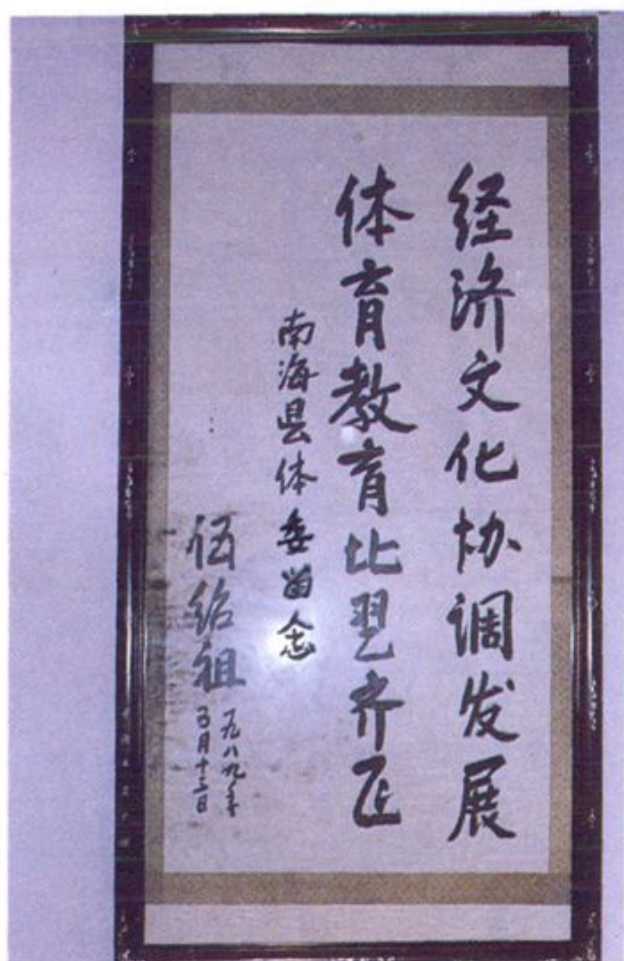 经济文化协调发展
体育教育比翼齐飞
南海县体委留念
伍绍祖
一九八九年
五月十三日